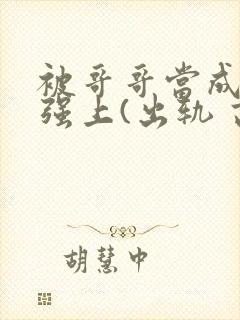 被哥哥當成
强上(出轨
胡慧中